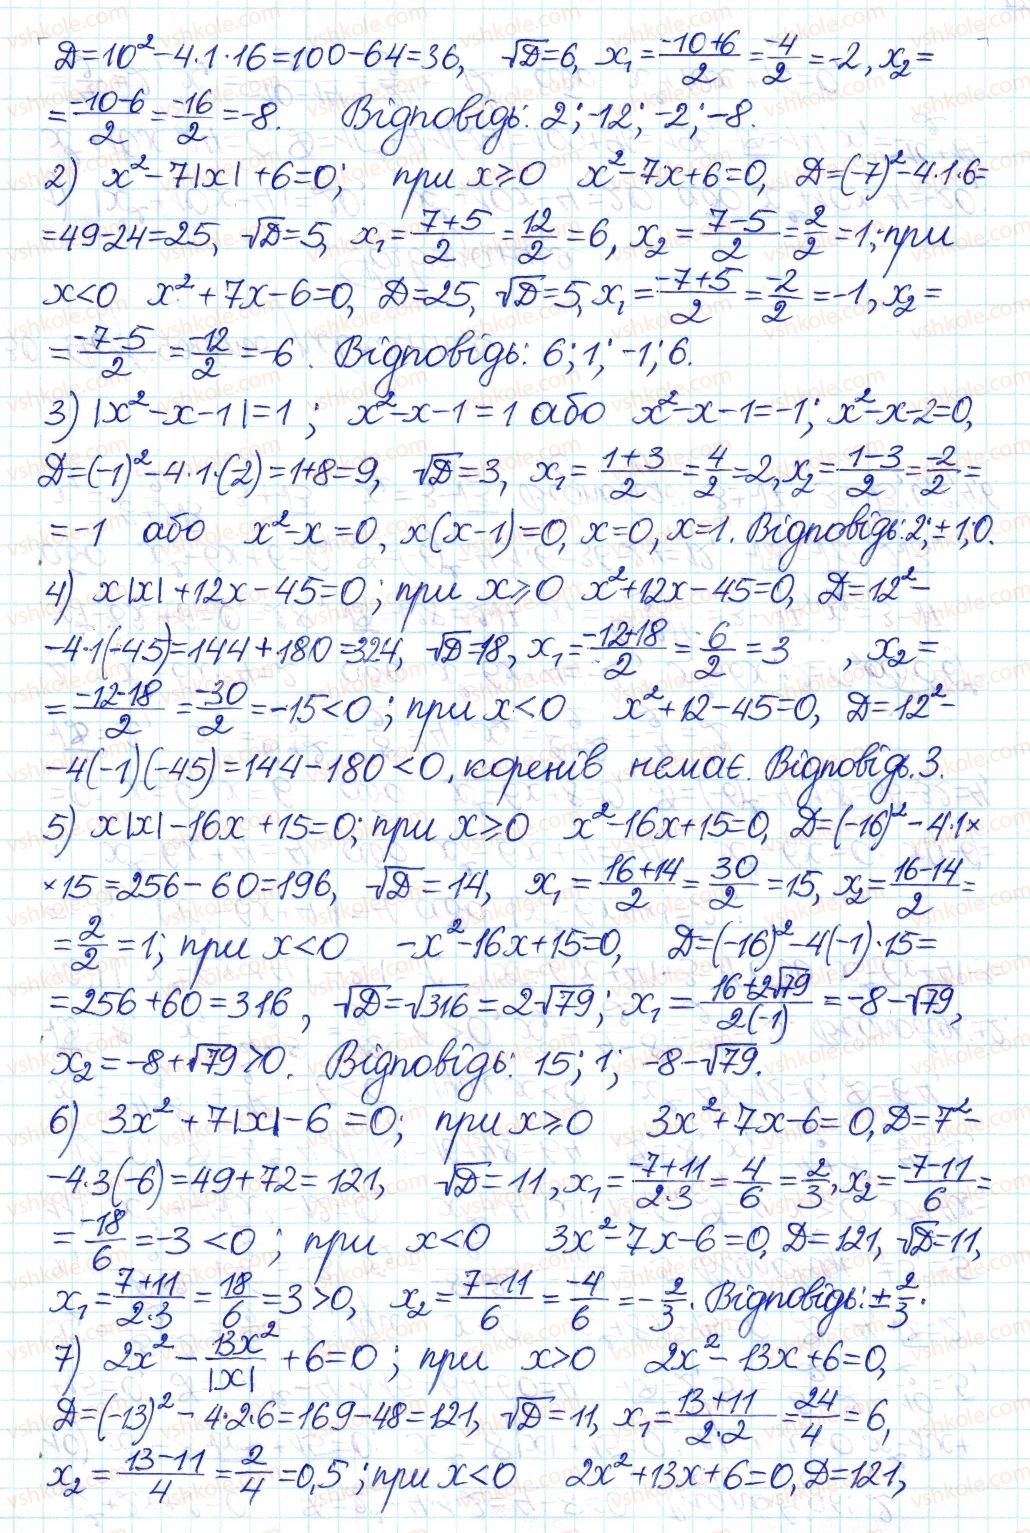 D=10²-4·1·16=100-64=36, √D=6, x₁=(-10+6)/2=-4/2=-2, x₂=
=(-10-6)/2=-16/2=-8. Відповідь: 2; -12; -2; -8.
2) x²-7|x|+6=0; при x≥0 x²-7x+6=0, D=(-7)²-4·1·6=
=49-24=25, √D=5, x₁=(7+5)/2=12/2=6, x₂=(7-5)/2=2/2=1; при
x<0 x²+7x-6=0, D=25, √D=5, x₁=(-7+5)/2=-2/2=-1, x₂=
=(-7-5)/2=-12/2=-6. Відповідь: 6; 1; -1; 6.
3) |x²-x-1|=1; x²-x-1=1 або x²-x-1=-1; x²-x-2=0,
D=(-1)²-4·1·(-2)=1+8=9, √D=3, x₁=(1+3)/2=4/2=2, x₂=(1-3)/2=-2/2=
=-1 або x²-x=0, x(x-1)=0, x=0, x=1. Відповідь: 2; ±1; 0.
4) x|x|+12x-45=0; при x≥0 x²+12x-45=0, D=12²-
-4·1(-45)=144+180=324, √D=18, x₁=(-12+18)/2=6/2=3, x₂=
=(-12-18)/2=-30/2=-15<0; при x<0 x²+12-45=0, D=12²-
-4(-1)(-45)=144-180<0, коренів немає. Відповідь. 3.
5) x|x|-16x+15=0; при x≥0 x²-16x+15=0, D=(-16)²-4·1×
×15=256-60=196, √D=14, x₁=(16+14)/2=30/2=15, x₂=(16-14)/2=
=2/2=1; при x<0 -x²-16x+15=0, D=(-16)²-4(-1)·15=
=256+60=316, √D=√316=2√79; x₁=(16+2√79)/(2(-1))=-8-√79,
x₂=-8+√79>0. Відповідь: 15; 1; -8-√79.
6) 3x²+7|x|-6=0; при x≥0 3x²+7x-6=0, D=7²-
-4·3(-6)=49+72=121, √D=11, x₁=(-7+11)/(2·3)=4/6=2/3, x₂=(-7-11)/6=
=-18/6=-3<0; при x<0 3x²-7x-6=0, D=121, √D=11,
x₁=(7+11)/(2·3)=18/6=3>0, x₂=(7-11)/6=-4/6=-2/3. Відповідь: ±2/3.
7) 2x²-13x²/|x|+6=0; при x>0 2x²-13x+6=0,
D=(-13)²-4·2·6=169-48=121, √D=11, x₁=(13+11)/(2·2)=24/4=6,
x₂=(13-11)/4=2/4=0,5; при x<0 2x²+13x+6=0, D=121,